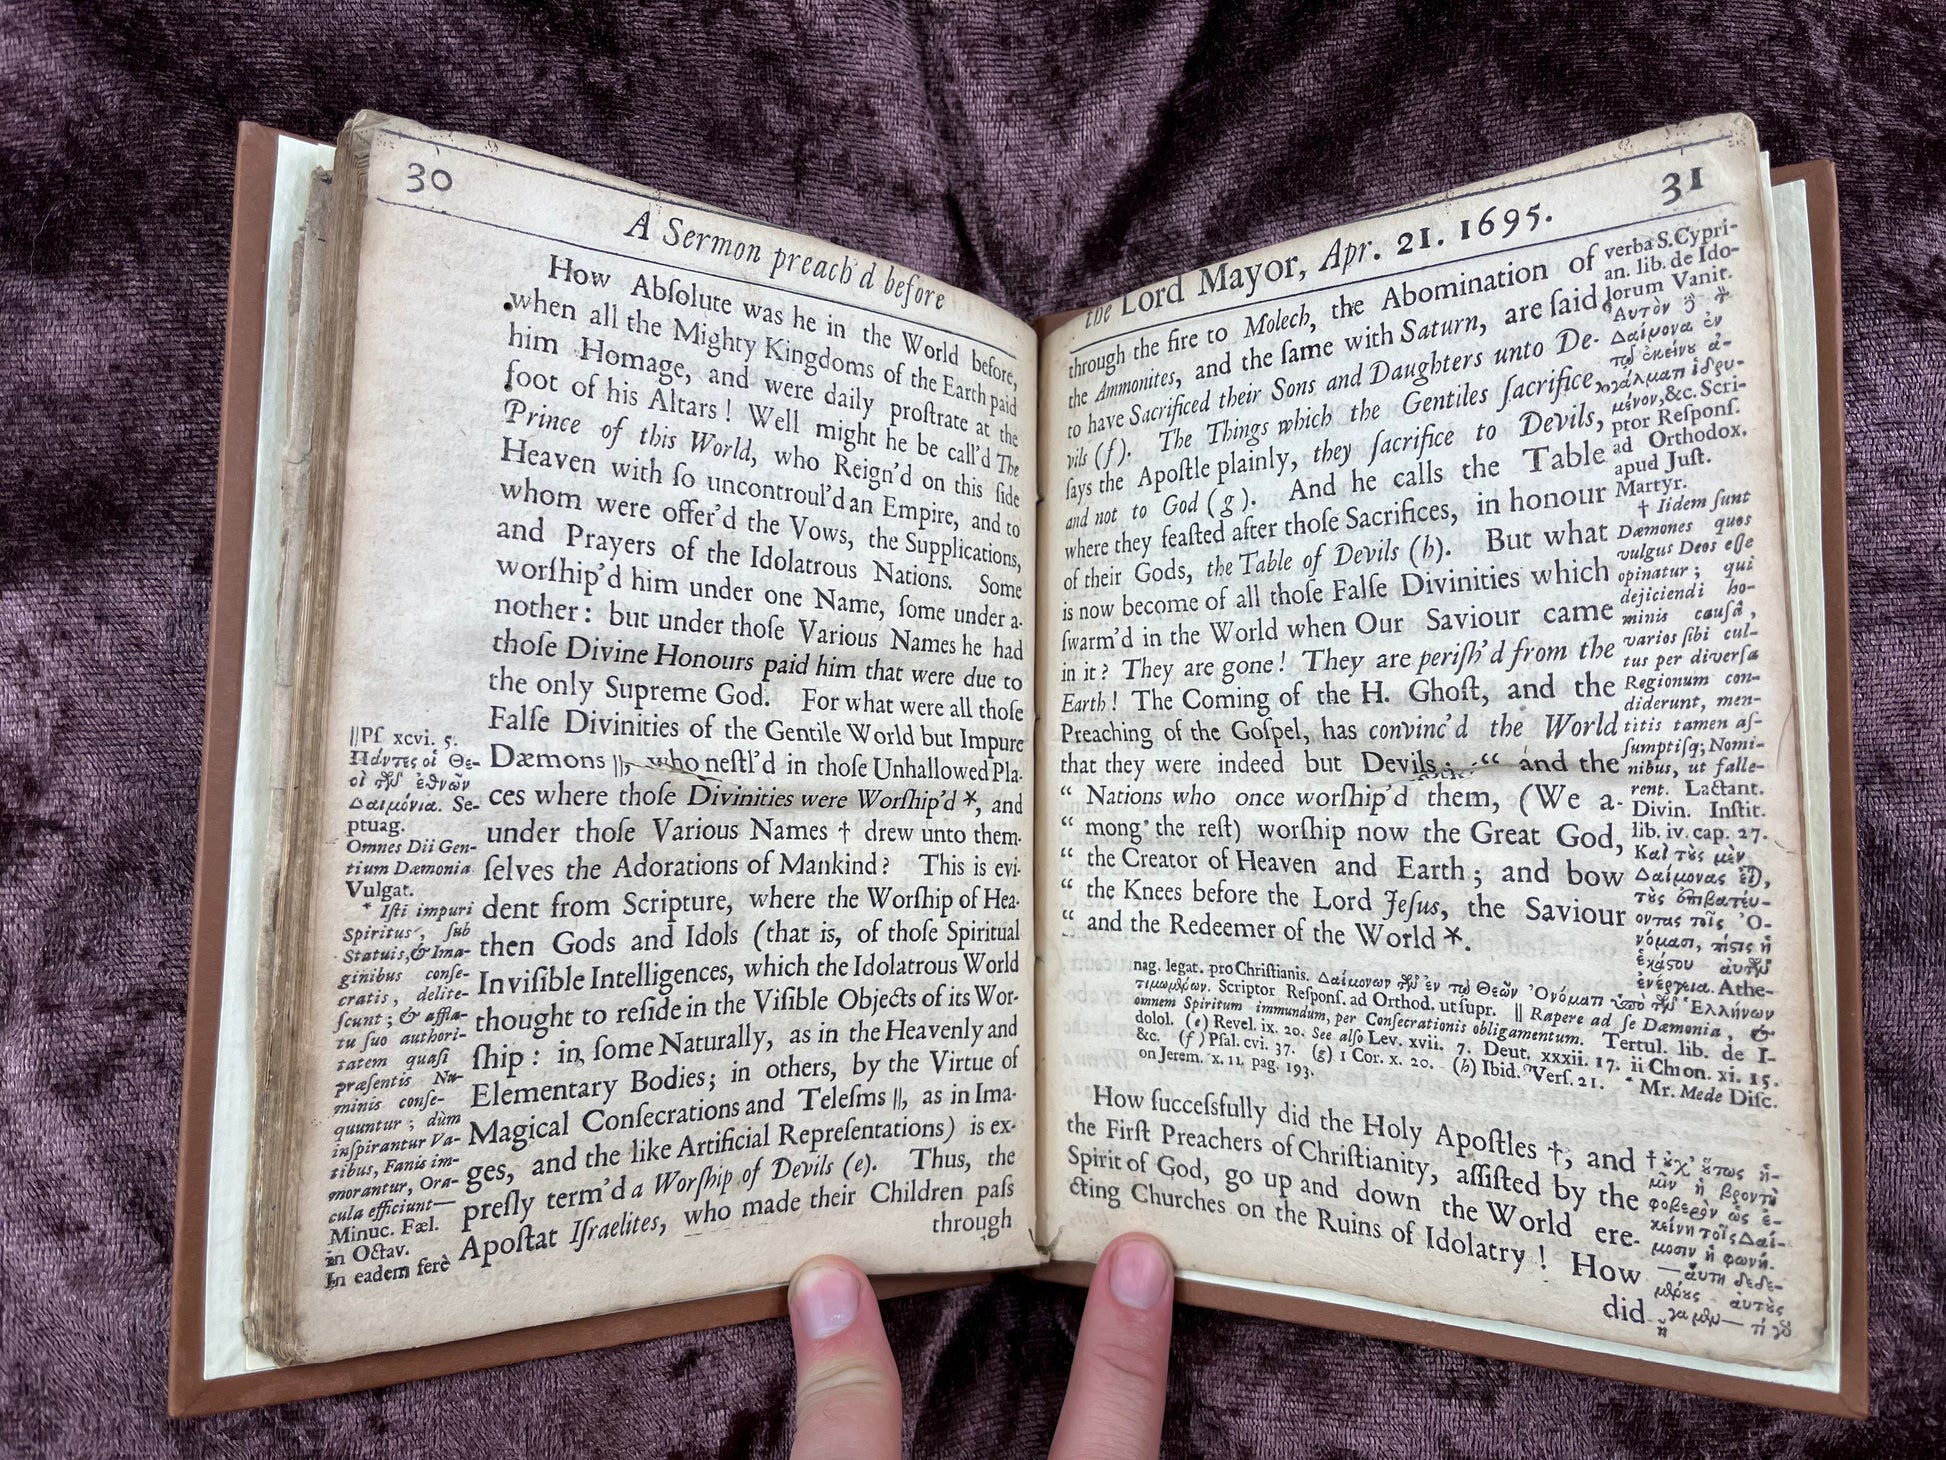 30
A Sermon preach'd before
How Abſolute was he in the World before,
when all the Mighty Kingdoms of the Earth paid
him Homage, and were daily proſtrate at the
foot of his Altars! Well might he be call'd The
Prince of this World, who Reign'd on this ſide
Heaven with ſo uncontroul'd an Empire, and to
whom were offer'd the Vows, the Supplications,
and Prayers of the Idolatrous Nations. Some
worſhip'd him under one Name, ſome under a-
nother: but under thoſe Various Names he had
thoſe Divine Honours paid him that were due to
the only Supreme God. For what were all thoſe
Falſe Divinities of the Gentile World but Impure
Dæmons ||, who neſtl'd in thoſe Unhallowed Pla-
ces where thoſe Divinities were Worſhip'd *, and
under thoſe Various Names † drew unto them-
ſelves the Adorations of Mankind? This is evi-
dent from Scripture, where the Worſhip of Hea-
then Gods and Idols (that is, of thoſe Spiritual
Inviſible Intelligences, which the Idolatrous World
thought to reſide in the Viſible Objects of its Wor-
ſhip: in ſome Naturally, as in the Heavenly and
Elementary Bodies; in others, by the Virtue of
Magical Conſecrations and Teleſms ||, as in Ima-
ges, and the like Artificial Repreſentations) is ex-
preſly term'd a Worſhip of Devils (e). Thus, the
Apoſtat Iſraelites, who made their Children paſs
through
||Pſ. xcvi. 5.
Πάντες οἱ Θε-
οὶ τῶν ἐθνῶν
Δαιμόνια. Se-
ptuag.
Omnes Dii Gen-
tium Dæmonia
Vulgat.
* Iſti impuri
Spiritus, ſub
Statuis, & Ima-
ginibus conſe-
cratis, delite-
ſcunt; & affla-
tu ſuo authori-
tatem quaſi
præſentis Nu-
minis conſe-
quuntur; dùm
inſpirantur Va-
tibus, Fanis im-
morantur, Ora-
cula efficiunt—
Minuc. Fæl.
in Octav.
In eadem ferè
31
the Lord Mayor, Apr. 21. 1695.
through the fire to Molech, the Abomination of
the Ammonites, and the ſame with Saturn, are ſaid
to have Sacrificed their Sons and Daughters unto De-
vils (f). The Things which the Gentiles ſacrifice,
ſays the Apoſtle plainly, they ſacrifice to Devils,
and not to God (g). And he calls the Table
where they feaſted after thoſe Sacrifices, in honour
of their Gods, the Table of Devils (h). But what
is now become of all thoſe Falſe Divinities which
ſwarm'd in the World when Our Saviour came
in it? They are gone! They are periſh'd from the
Earth! The Coming of the H. Ghoſt, and the
Preaching of the Goſpel, has convinc'd the World
that they were indeed but Devils; “ and the
“ Nations who once worſhip'd them, (We a-
“ mong the reſt) worſhip now the Great God,
“ the Creator of Heaven and Earth; and bow
“ the Knees before the Lord Jeſus, the Saviour
“ and the Redeemer of the World *.
verba S. Cypri-
an. lib. de Ido-
lorum Vanit.
Αὐτὸν
Δαίμονα ἐν
τῷ ἐκείνου ἀ-
γάλματι ἱδρυ-
μένον, &c. Scri-
ptor Reſponſ.
ad Orthodox.
apud Juſt.
Martyr.
† Iidem ſunt
Dæmones quos
vulgus Deos eſſe
opinatur; qui
dejiciendi ho-
minis cauſâ,
varios ſibi cul-
tus per diverſa
Regionum con-
diderunt, men-
titis tamen aſ-
ſumptiſq; Nomi-
nibus, ut falle-
rent. Lactant.
Divin. Inſtit.
lib. iv. cap. 27.
Καὶ τὸς μὲν
Δαίμονας
τὸς ἐπιβατεύ-
οντας τοῖς Ὀ-
νόμασι, πίστις ἡ
ἑκάστου αὐτῶν
ἐνέργεια. Athe-
nag. legat. pro Chriſtianis. Δαίμονων τῶν ἐν τῷ Θεῶν Ὀνόματι ὑπὸ τῶν Ἑλλήνων
τιμωμένων. Scriptor Reſponſ. ad Orthod. ut ſupr. || Rapere ad ſe Dæmonia, &
omnem Spiritum immundum, per Conſecrationis obligamentum. Tertul. lib. de I-
dolol. (e) Revel. ix. 20. See alſo Lev. xvii. 7. Deut. xxxii. 17. ii Chron. xi. 15.
&c. (f) Pſal. cvi. 37. (g) 1 Cor. x. 20. (h) Ibid. Verſ. 21. * Mr. Mede Diſc.
on Jerem. x. 11. pag. 193.
How ſucceſsfully did the Holy Apoſtles †, and
the Firſt Preachers of Chriſtianity, aſſiſted by the
Spirit of God, go up and down the World ere-
cting Churches on the Ruins of Idolatry! How
did
† οὐχ' οὕτως ἡ-
μῖν ἡ βροντὴ
φοβερὸν ὡς ἐ-
κείνη τοῖς Δαί-
μοσιν ἡ φωνή.
—
αὐτοὺς